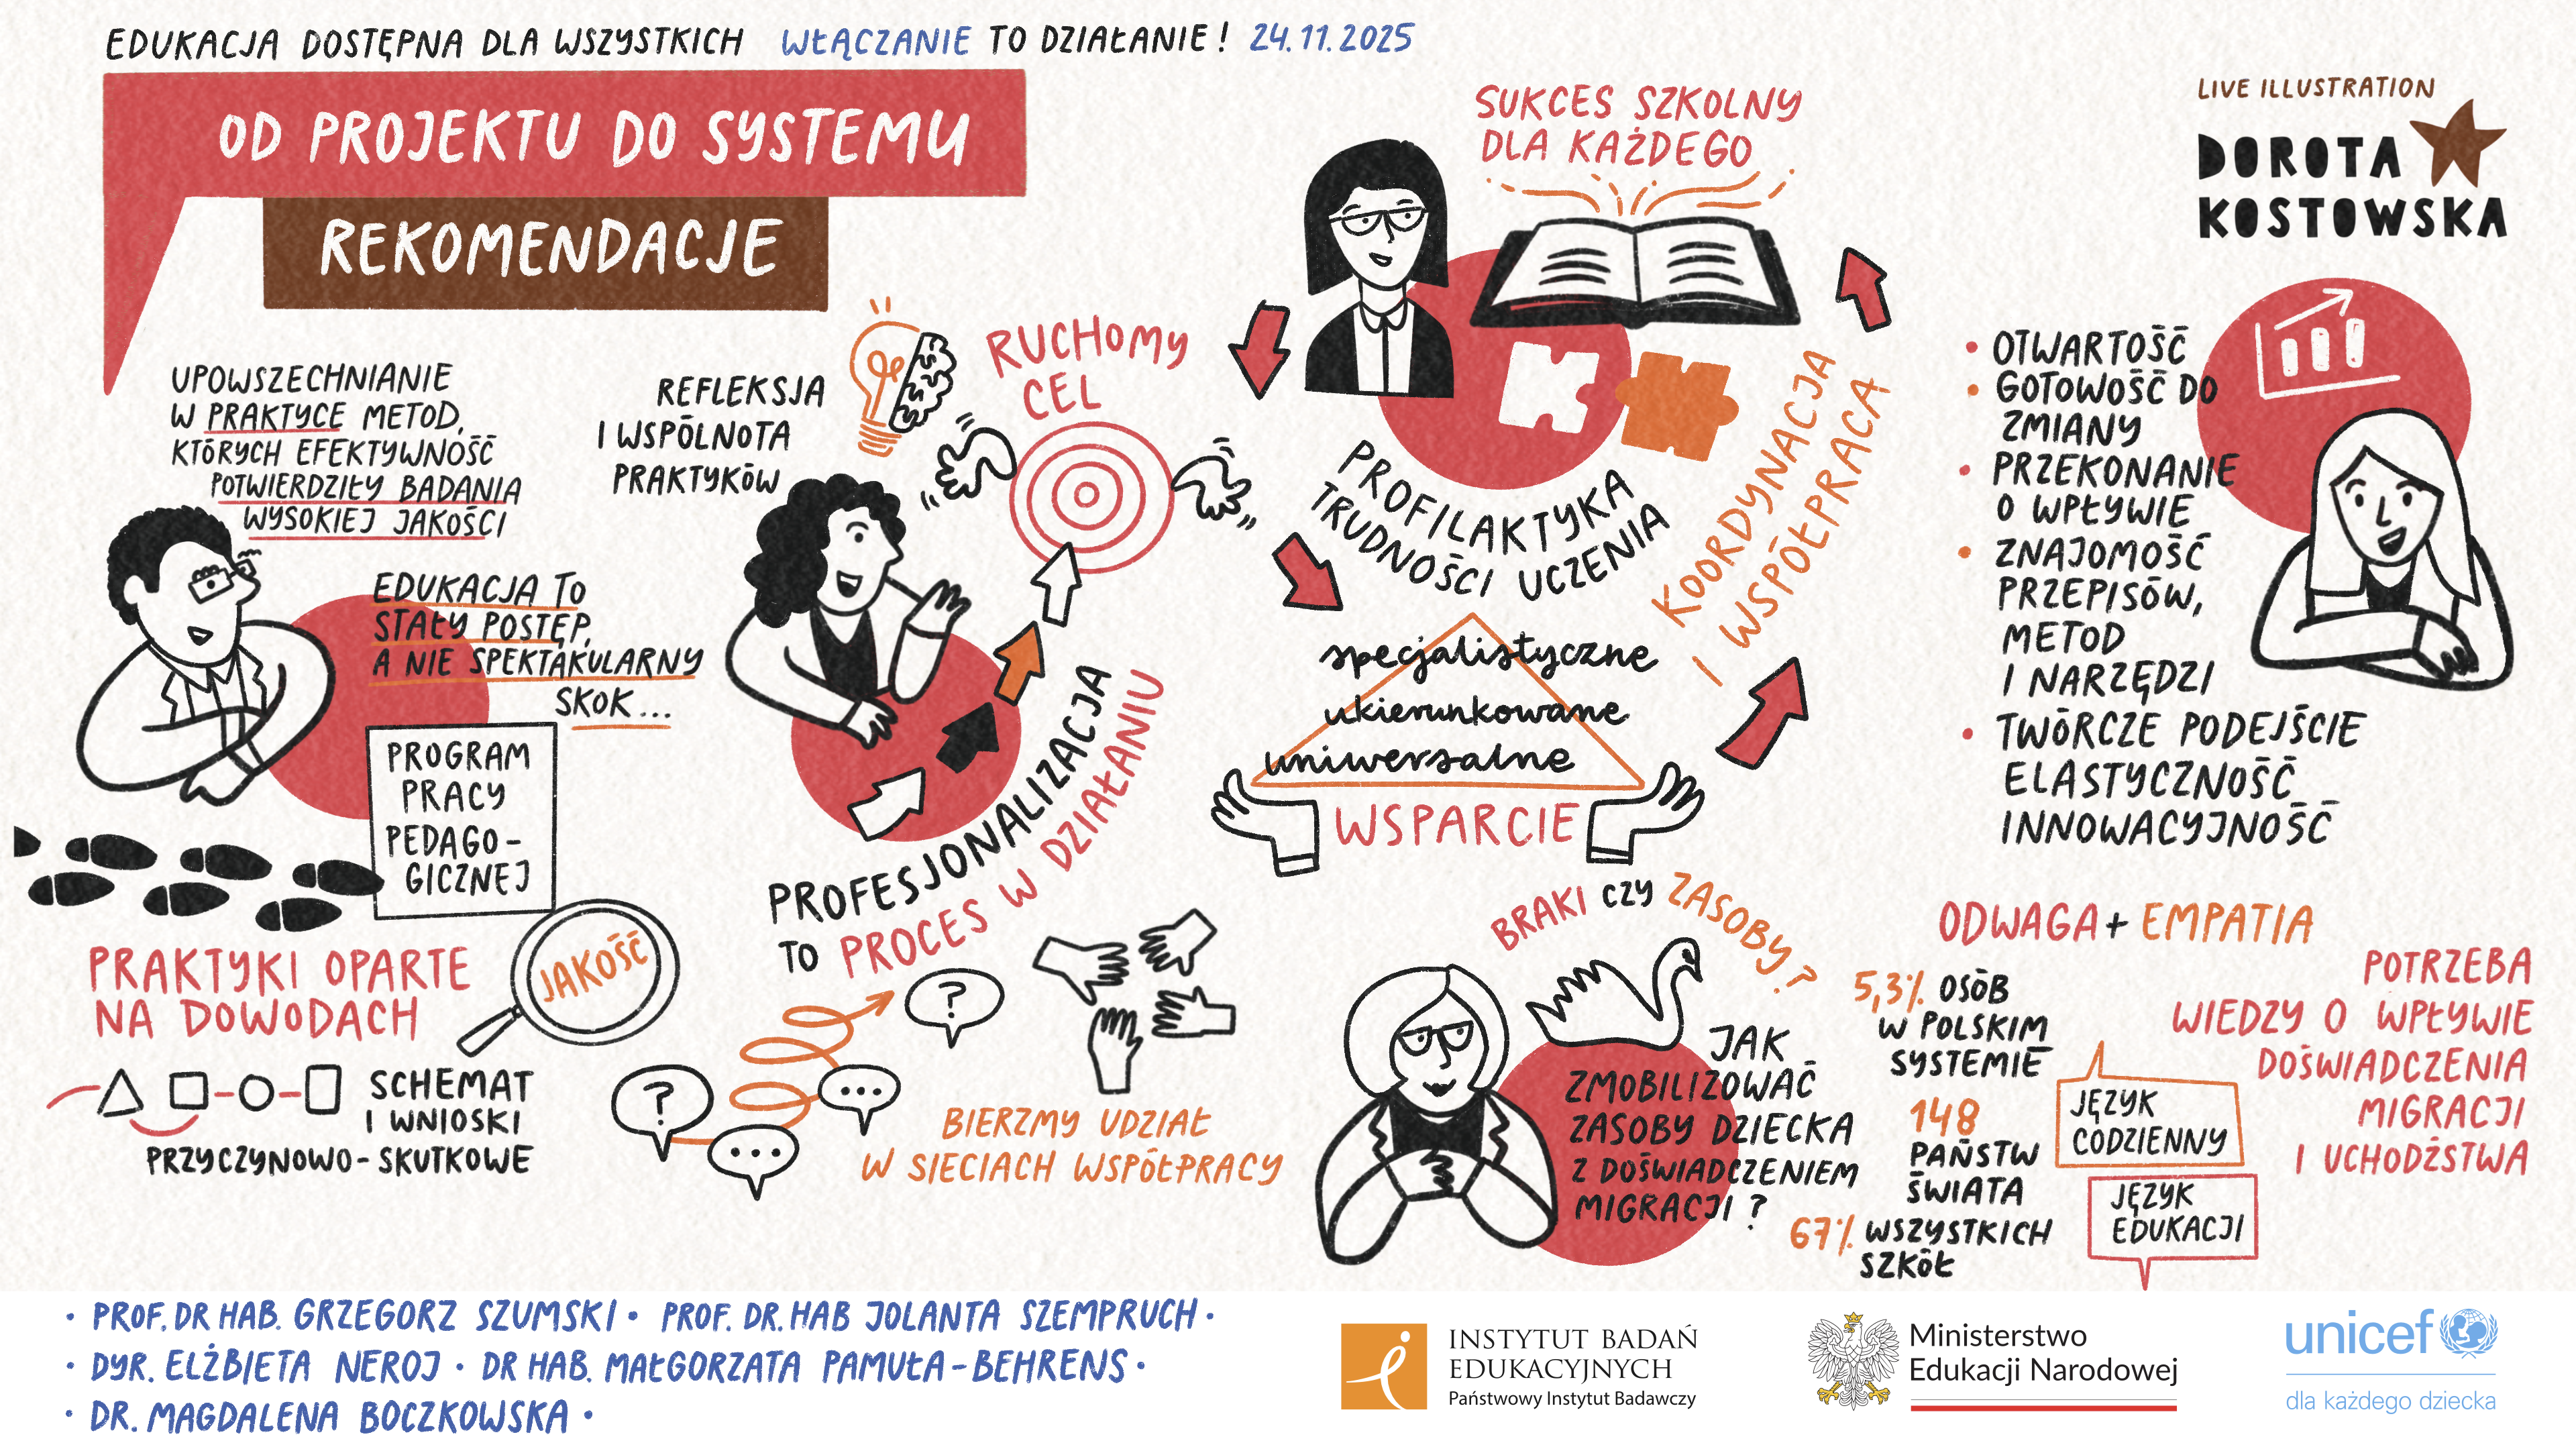 EDUKACJA DOSTĘPNA DLA WSZYSTKICH WŁĄCZANIE TO DZIAŁANIE! 24.11.2025
OD PROJEKTU DO SYSTEMU
REKOMENDACJE
UPOWSZECHNIANIE
W PRAKTYCE METOD,
KTÓRYCH EFEKTYWNOŚĆ
POTWIERDZIŁY BADANIA
WYSOKIEJ JAKOŚCI
EDUKACJA TO
STAŁY POSTĘP,
A NIE SPEKTAKULARNY
SKOK...
PROGRAM
PRACY
PEDAGO-
GICZNEJ
PRAKTYKI OPARTE
NA DOWODACH
JAKOŚĆ
SCHEMAT
I WNIOSKI
PRZYCZYNOWO-SKUTKOWE
REFLEKSJA
I WSPÓLNOTA
PRAKTYKÓW
RUCHOMY
CEL
PROFESJONALIZACJA
TO PROCES W DZIAŁANIU
?
...
...
?
BIERZMY UDZIAŁ
W SIECIACH WSPÓŁPRACY
SUKCES SZKOLNY
DLA KAŻDEGO
PROFILAKTYKA
TRUDNOŚCI UCZENIA
KOORDYNACJA
I WSPÓŁPRACA
specjalistyczne
ukierunkowane
uniwersalne
WSPARCIE
BRAKI CZY ZASOBY?
JAK
ZMOBILIZOWAĆ
ZASOBY DZIECKA
Z DOŚWIADCZENIEM
MIGRACJI?
LIVE ILLUSTRATION
DOROTA
KOSTOWSKA
• OTWARTOŚĆ
• GOTOWOŚĆ DO
ZMIANY
• PRZEKONANIE
O WPŁYWIE
• ZNAJOMOŚĆ
PRZEPISÓW,
METOD
I NARZĘDZI
• TWÓRCZE PODEJŚCIE
ELASTYCZNOŚĆ
INNOWACYJNOŚĆ
ODWAGA + EMPATIA
5,3% OSÓB
W POLSKIM
SYSTEMIE
148
PAŃSTW
ŚWIATA
67% WSZYSTKICH
SZKÓŁ
JĘZYK
CODZIENNY
JĘZYK
EDUKACJI
POTRZEBA
WIEDZY O WPŁYWIE
DOŚWIADCZENIA
MIGRACJI
I UCHODŹSTWA
• PROF. DR HAB. GRZEGORZ SZUMSKI • PROF. DR. HAB JOLANTA SZEMPRUCH •
• DYR. ELŻBIETA NEROJ • DR HAB. MAŁGORZATA PAMUŁA-BEHRENS •
• DR. MAGDALENA BOCZKOWSKA •
INSTYTUT BADAŃ
EDUKACYJNYCH
Państwowy Instytut Badawczy
Ministerstwo
Edukacji Narodowej
unicef
dla każdego dziecka